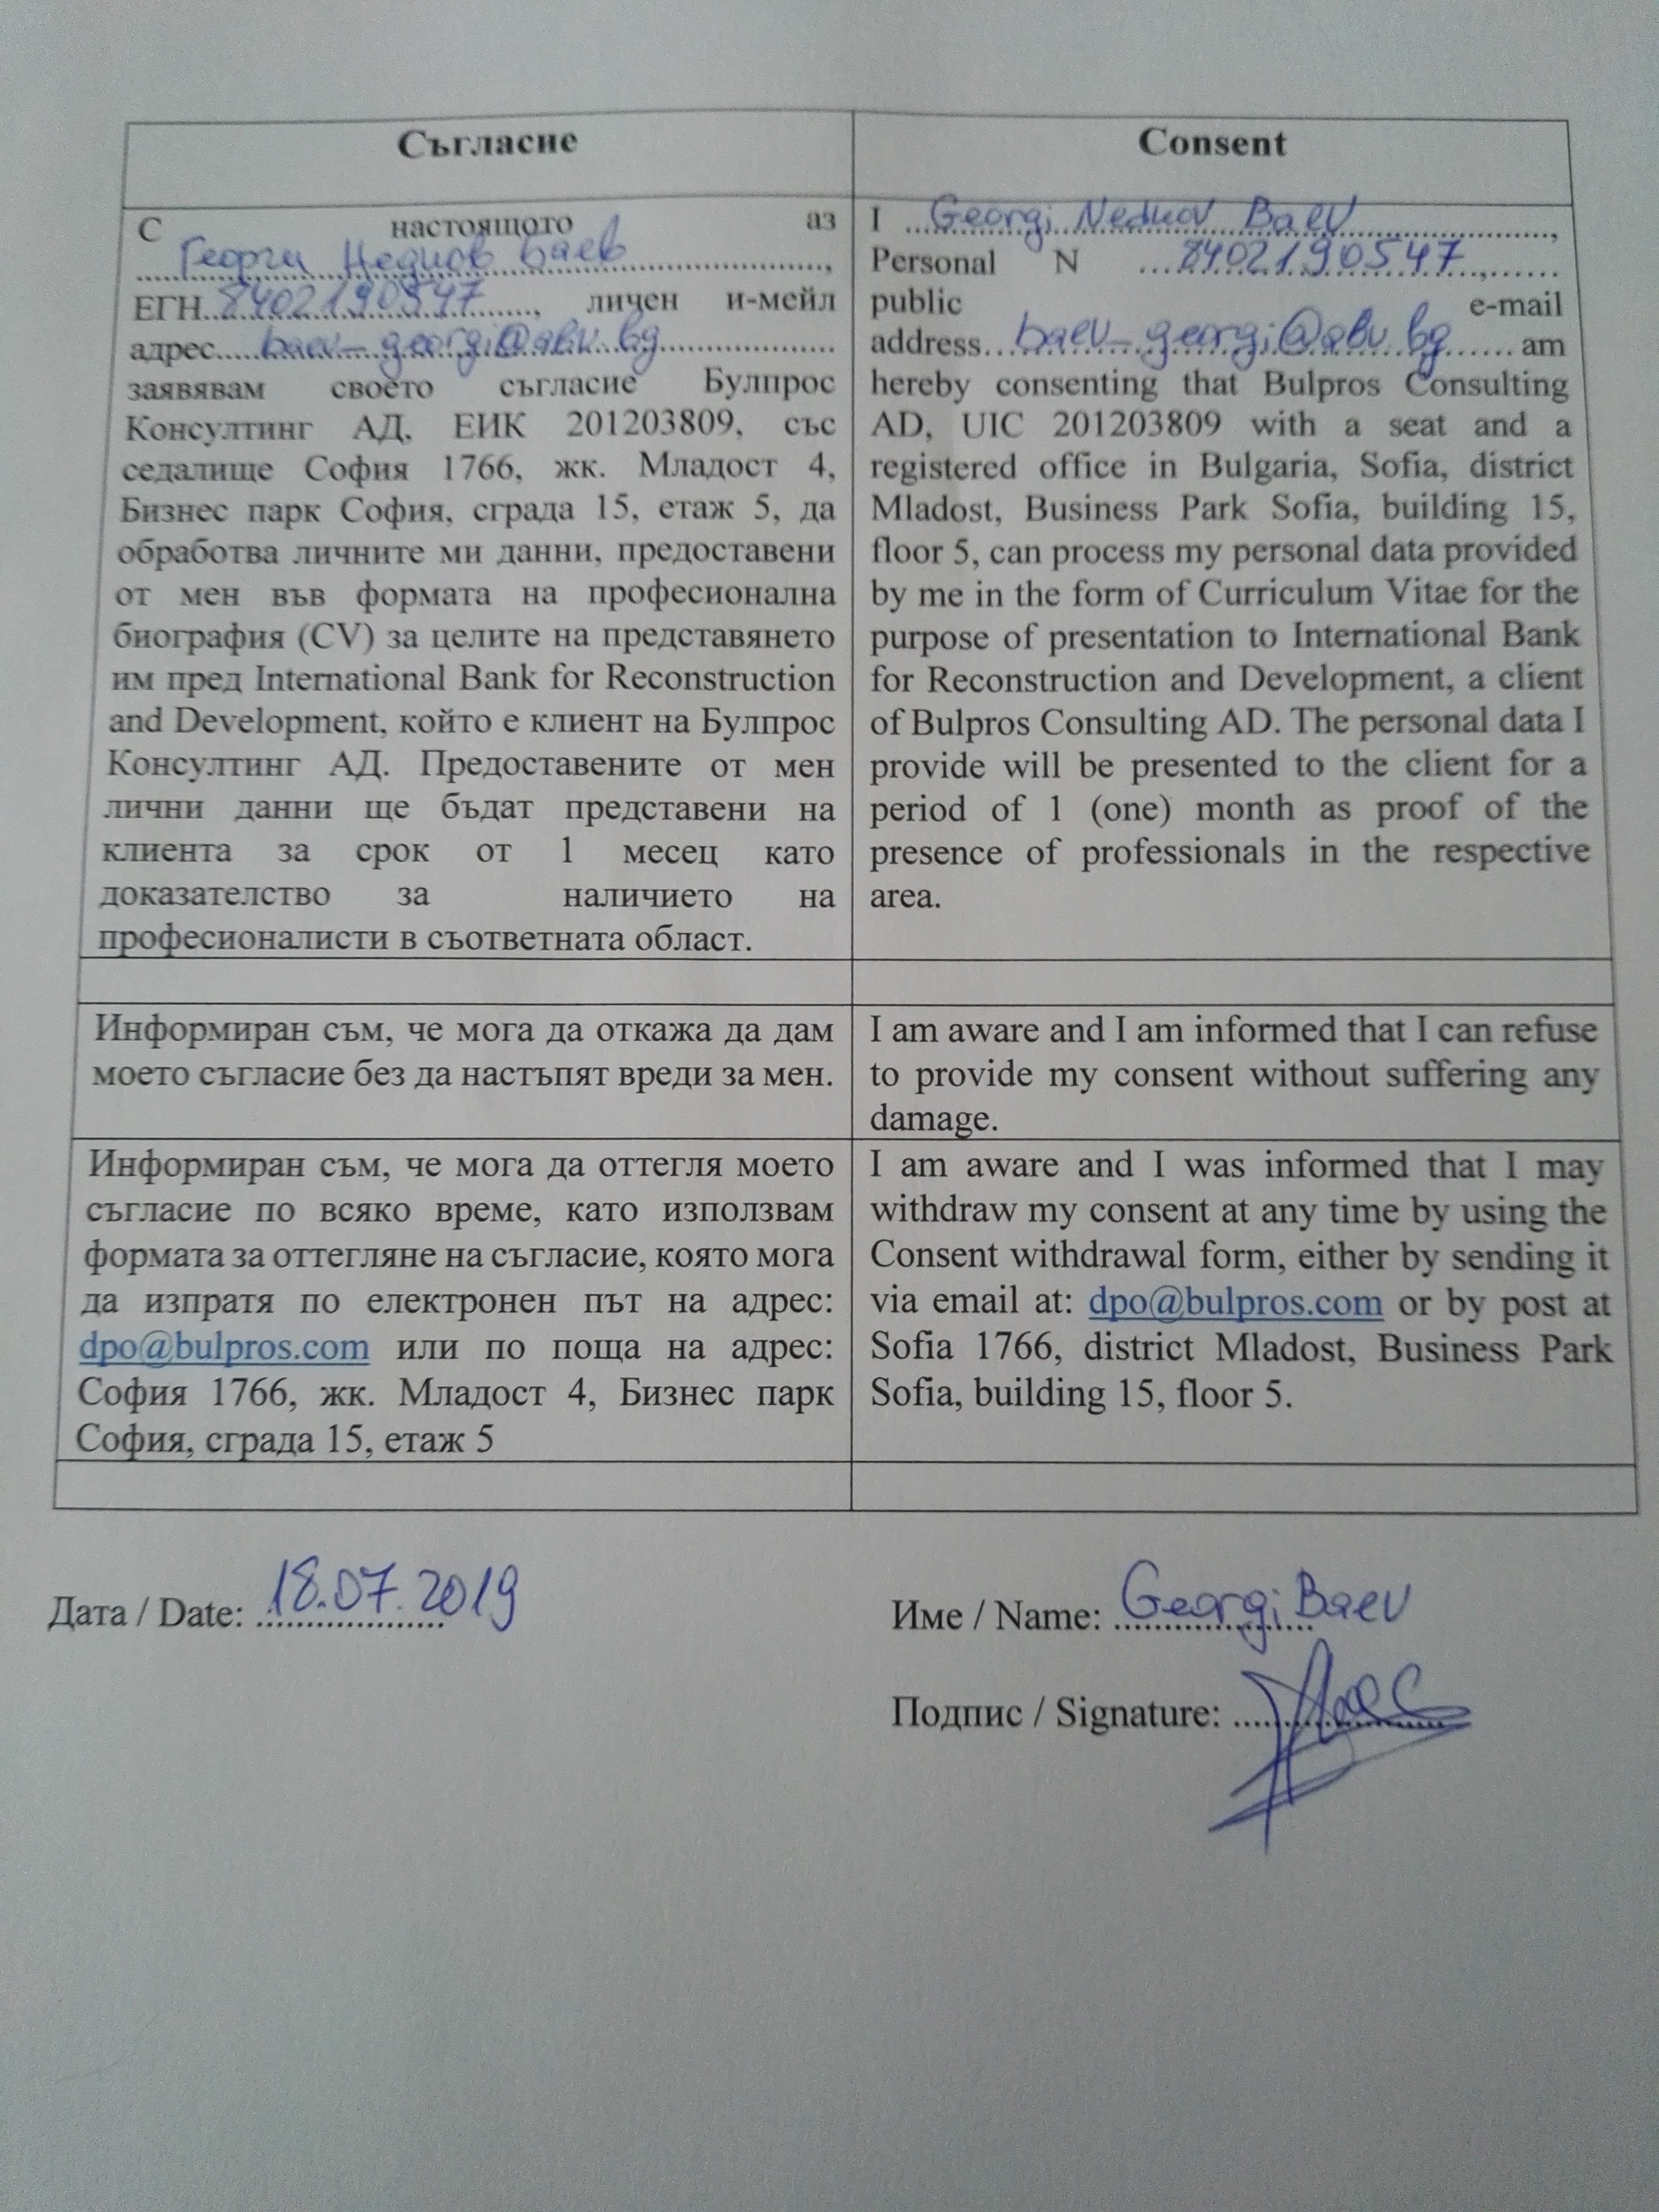 Съгласие
С настоящото аз
Георги Недков Баев,
ЕГН 8402190547, личен и-мейл
адрес baev_georgi@abv.bg
заявявам своето съгласие Булпрос
Консултинг АД, ЕИК 201203809, със
седалище София 1766, жк. Младост 4,
Бизнес парк София, сграда 15, етаж 5, да
обработва личните ми данни, предоставени
от мен във формата на професионална
биография (CV) за целите на представянето
им пред International Bank for Reconstruction
and Development, който е клиент на Булпрос
Консултинг АД. Предоставените от мен
лични данни ще бъдат представени на
клиента за срок от 1 месец като
доказателство за наличието на
професионалисти в съответната област.
Consent
I Georgi Nedkov Baev,
Personal N 8402190547,
public e-mail
address baev_georgi@abv.bg am
hereby consenting that Bulpros Consulting
AD, UIC 201203809 with a seat and a
registered office in Bulgaria, Sofia, district
Mladost, Business Park Sofia, building 15,
floor 5, can process my personal data provided
by me in the form of Curriculum Vitae for the
purpose of presentation to International Bank
for Reconstruction and Development, a client
of Bulpros Consulting AD. The personal data I
provide will be presented to the client for a
period of 1 (one) month as proof of the
presence of professionals in the respective
area.
Информиран съм, че мога да откажа да дам
моето съгласие без да настъпят вреди за мен.
I am aware and I am informed that I can refuse
to provide my consent without suffering any
damage.
Информиран съм, че мога да оттегля моето
съгласие по всяко време, като използвам
формата за оттегляне на съгласие, която мога
да изпратя по електронен път на адрес:
dpo@bulpros.com или по поща на адрес:
София 1766, жк. Младост 4, Бизнес парк
София, сграда 15, етаж 5
I am aware and I was informed that I may
withdraw my consent at any time by using the
Consent withdrawal form, either by sending it
via email at: dpo@bulpros.com or by post at
Sofia 1766, district Mladost, Business Park
Sofia, building 15, floor 5.
Дата / Date: 18.07.2019
Име / Name: Georgi Baev
Подпис / Signature: